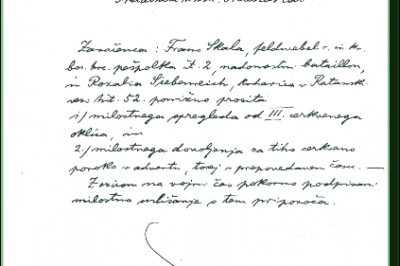 Zaročenca: Franc Skala, feldwebel c. in k.
bos. herc. pešpolka št. 2, nadomestni bataillon,
in Rozalia Siebenreich, kuharica v
hšt. 52. ponižno prosita
1.) milostnega spregleda od III. cerkvenega
oklica, in
2.) milostnega dovoljenja za tiho cerkveno
poroko v adventu, torej v prepovedanem času. —
Z ozirom na vojni čas pokorno podpisani
milostno uslišanje s tem priporoča.